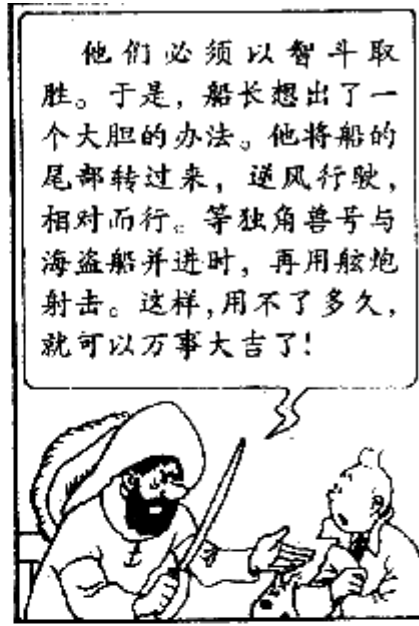 他们必须以智斗取
胜。于是，船长想出了一
个大胆的办法。他将船的
尾部转过来，逆风行驶，
相对而行。等独角兽号与
海盗船并进时，再用舷炮
射击。这样，用不了多久，
就可以万事大吉了！